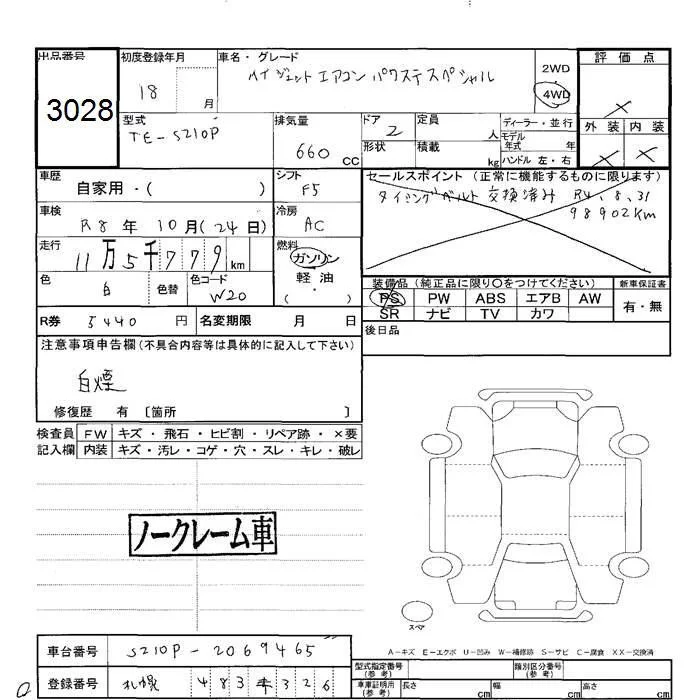 出品番号 3028
初度登録年月 18 月
車名・グレード
ハイジェット エアコン パワステスペシャル
2WD
4WD
評価点
×
外装 内装
× ×
型式
TE-S210P
排気量
660 CC
ドア 2
形状
定員 人
積載 kg
ディーラー・並行
モデル
年式 年
ハンドル 左・右
車歴
自家用・( )
シフト
F5
セールスポイント (正常に機能するものに限ります)
タイミングベルト 交換済み R4.8.31
98902Km
車検
R8年 10月(24日)
冷房
AC
走行
11万5千779 km
燃料
ガソリン
軽油
( ・ )
色
白
色替
色コード
W20
装備品 (純正品に限り○をつけてください)
新車保証書
PS PW ABS エアB AW
有・無
SR ナビ TV カワ
R券 5440 円
名変期限 月 日
後日品
注意事項申告欄 (不具合内容等は具体的に記入して下さい)
白煙
修復歴 有 〔箇所 〕
検査員 FW キズ・飛石・ヒビ割・リペア跡・×要
記入欄 内装 キズ・汚レ・コゲ・穴・スレ・キレ・破レ
ノークレーム車
スペア
A-キズ E-エクボ U-凹み W-補修跡 S-サビ C-腐食 XX-交換済
車台番号 S210P-2069465
登録番号 札幌 483 キ 326
型式指定番号
(参考)
類別区分番号
(参考)
車庫証明用
(参考)
長さ cm 幅 cm 高さ cm